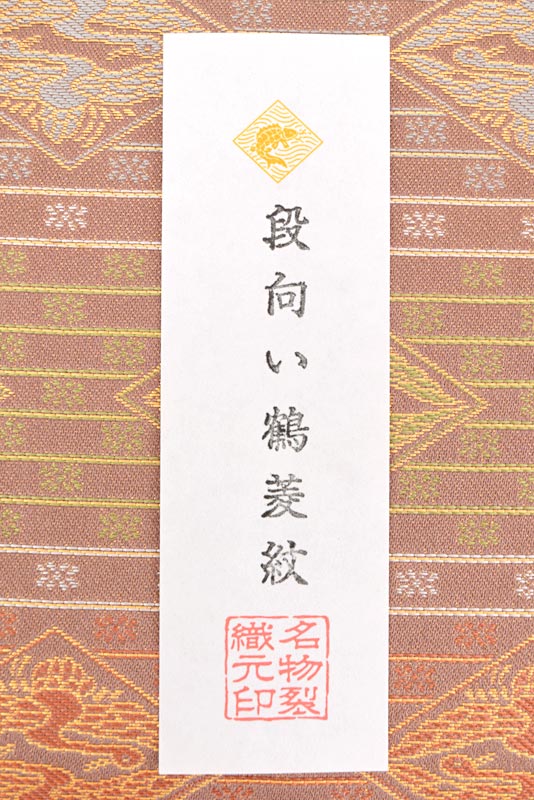 段向い鶴菱紋
名物裂
織元印